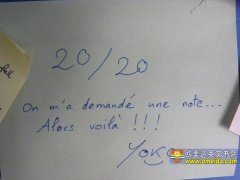 20/20
On m'a demandé une note...
Alors voilà !!!
YOK
www.omeida.com